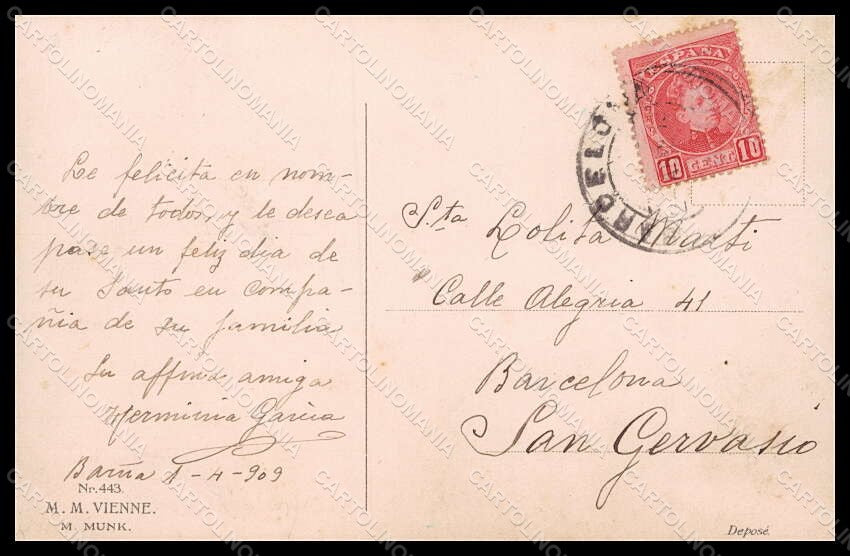 Le felicita en nom-
bre de todos, y le desea
pase un feliz dia de
su Santo en compa-
ñia de su familia
Su affma amiga
Herminia Garcia
Barna 1-4-909
Nr. 443.
M. M. VIENNE.
M. MUNK.
ESPAÑA
10 CENT 10
BARCELONA
Sta Lolita Marti
Calle Alegria 41
Barcelona
San Gervasio
Deposé.
CARTOLINOMANIA